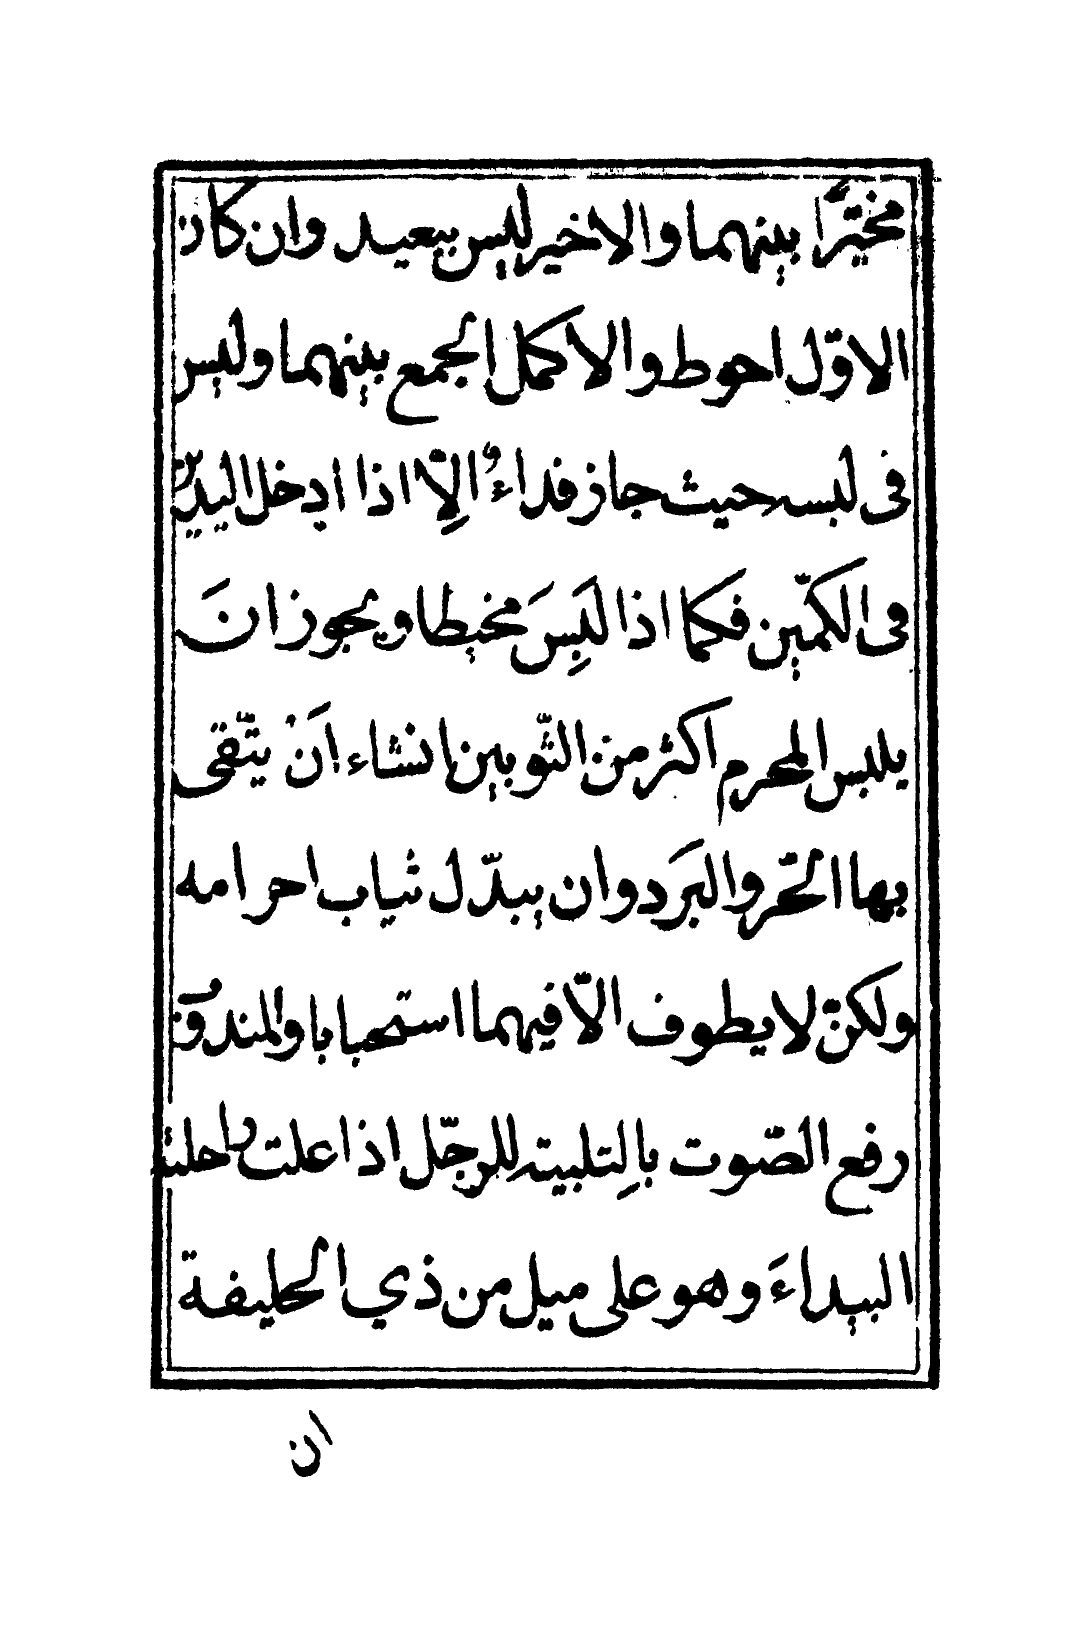 مخيّرًا بينهما والاخير ليس ببعيد وان كان
الاوّل احوط والاكمل الجمع بينهما وليس
فى لبسه حيث جاز فداءٌ اِلاّ اذا ادخل اليدين
فى الكمّين فكما اذا لَبِسَ مخيطا ويجوز انَ
يلبس المحرم اكثر من الثّوبين انشاء اَنْ يتّقى
بها الحّر والبَرد وان يبدّل ثياب احرامه
ولكنّ لا يطوف الاّ فيهما استحبابا والمندوبُ
رفع الصّوت بالِتلبيته للرجّل اذا علت راحلته
البيداءَ وهو على ميل من ذي الحليفة
ان